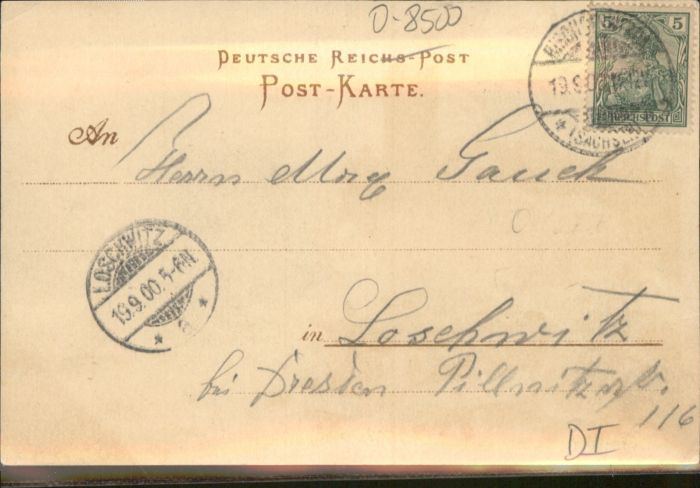 O-8500
DEUTSCHE REICHS-POST
POST-KARTE.
5 5
REICHSPOST
BISCHOFSWERDA
19.9.00
* (SACHSEN)
An
Herrn Max Gauck
LOSCHWITZ
19.9.00.5-6N.
* a *
in Loschwitz
bei Dresden Pillnitzerstr.
116
DI